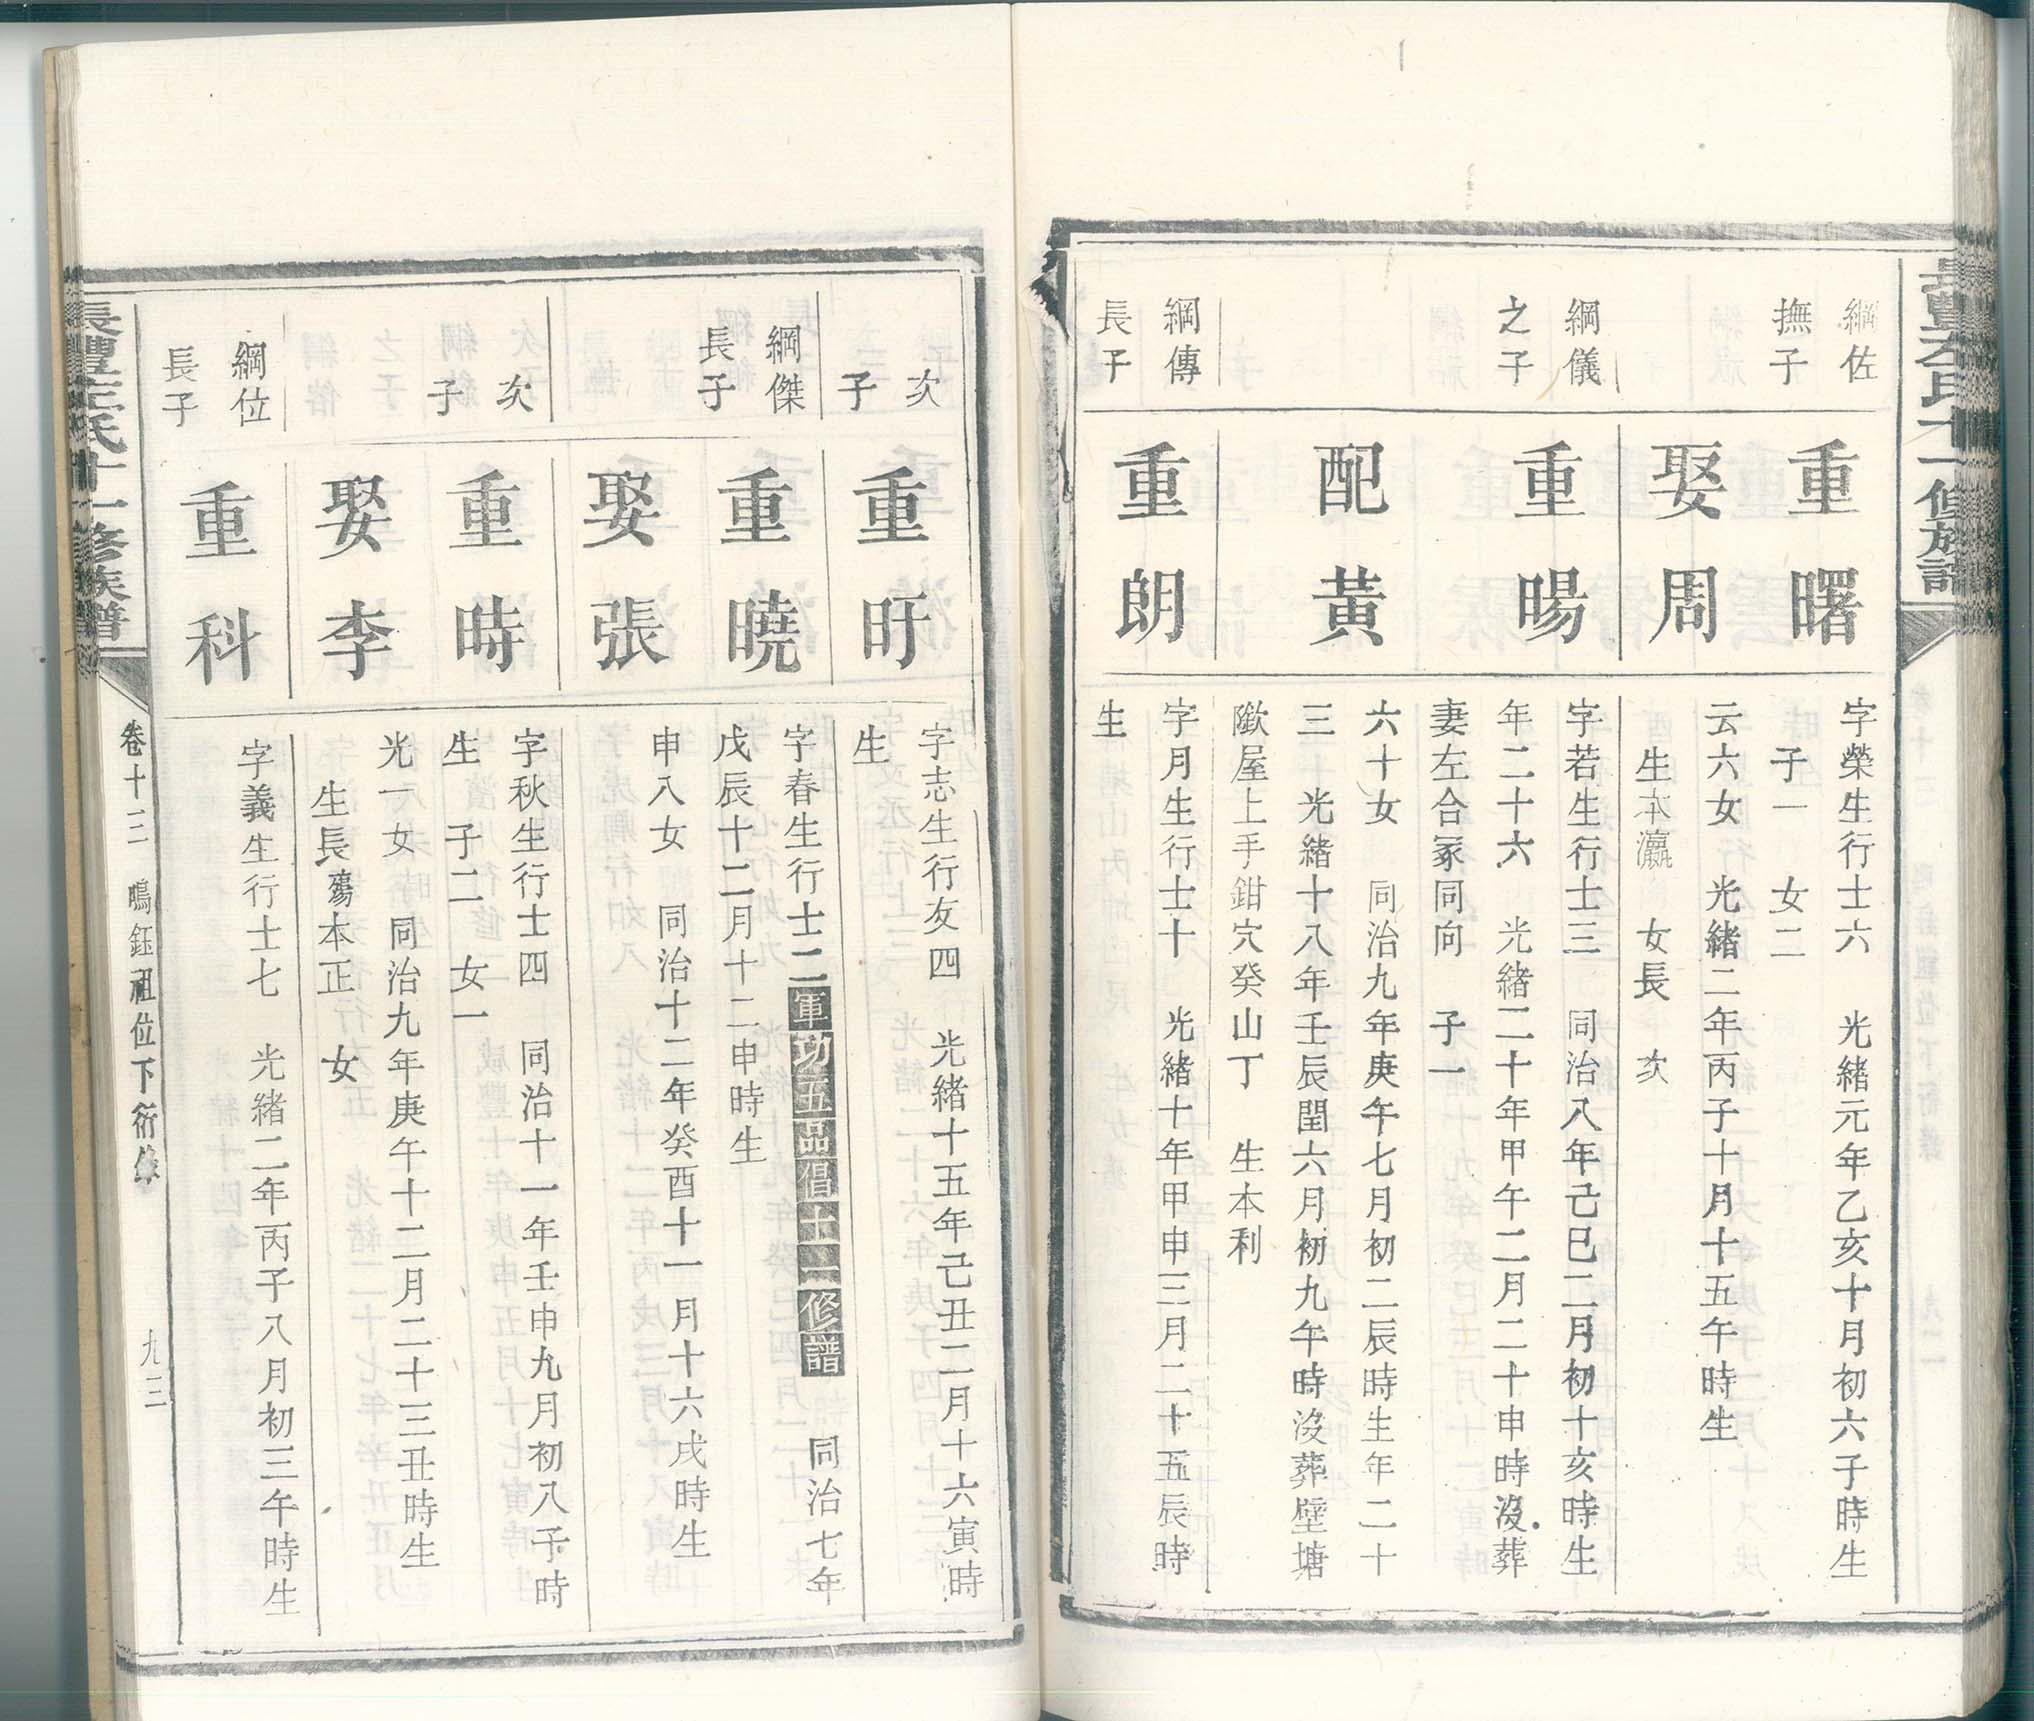 氏十一修族譜
綱佐
撫子
重曙
字榮生行士六　光緒元年乙亥十月初六子時生
子一　女二
娶周
云六女　光緒二年丙子十月十五午時生
生本瀛　女長　次
綱儀
之子
重暘
字若生行士三　同治八年己巳二月初十亥時生
年二十六　光緒二十年甲午二月二十申時沒葬
妻左合冢同向　子一
配黃
六十女　同治九年庚午七月初二辰時生年二十
三　光緒十八年壬辰閏六月初九午時沒葬壁塘
墩屋上手鉗穴癸山丁　生本利
綱傳
長子
重朗
字月生行士十　光緒十年甲申三月二十五辰時
生
次
子
重旴
字志生行友四　光緒十五年己丑二月十六寅時
生
綱傑
長子
重曉
字春生行士二軍功五品倡十一修譜　同治七年
戊辰十二月十二申時生
娶張
申八女　同治十二年癸酉十一月十六戌時生
次
子
重時
字秋生行士四　同治十一年壬申九月初八子時
生　子二　女一
娶李
光一女　同治九年庚午十二月二十三丑時生
生長殤本正　女
綱位
長子
重科
字義生行士七　光緒二年丙子八月初三午時生
長豐左氏十一修族譜
卷十三　鳴鈺祖位下衍
九三